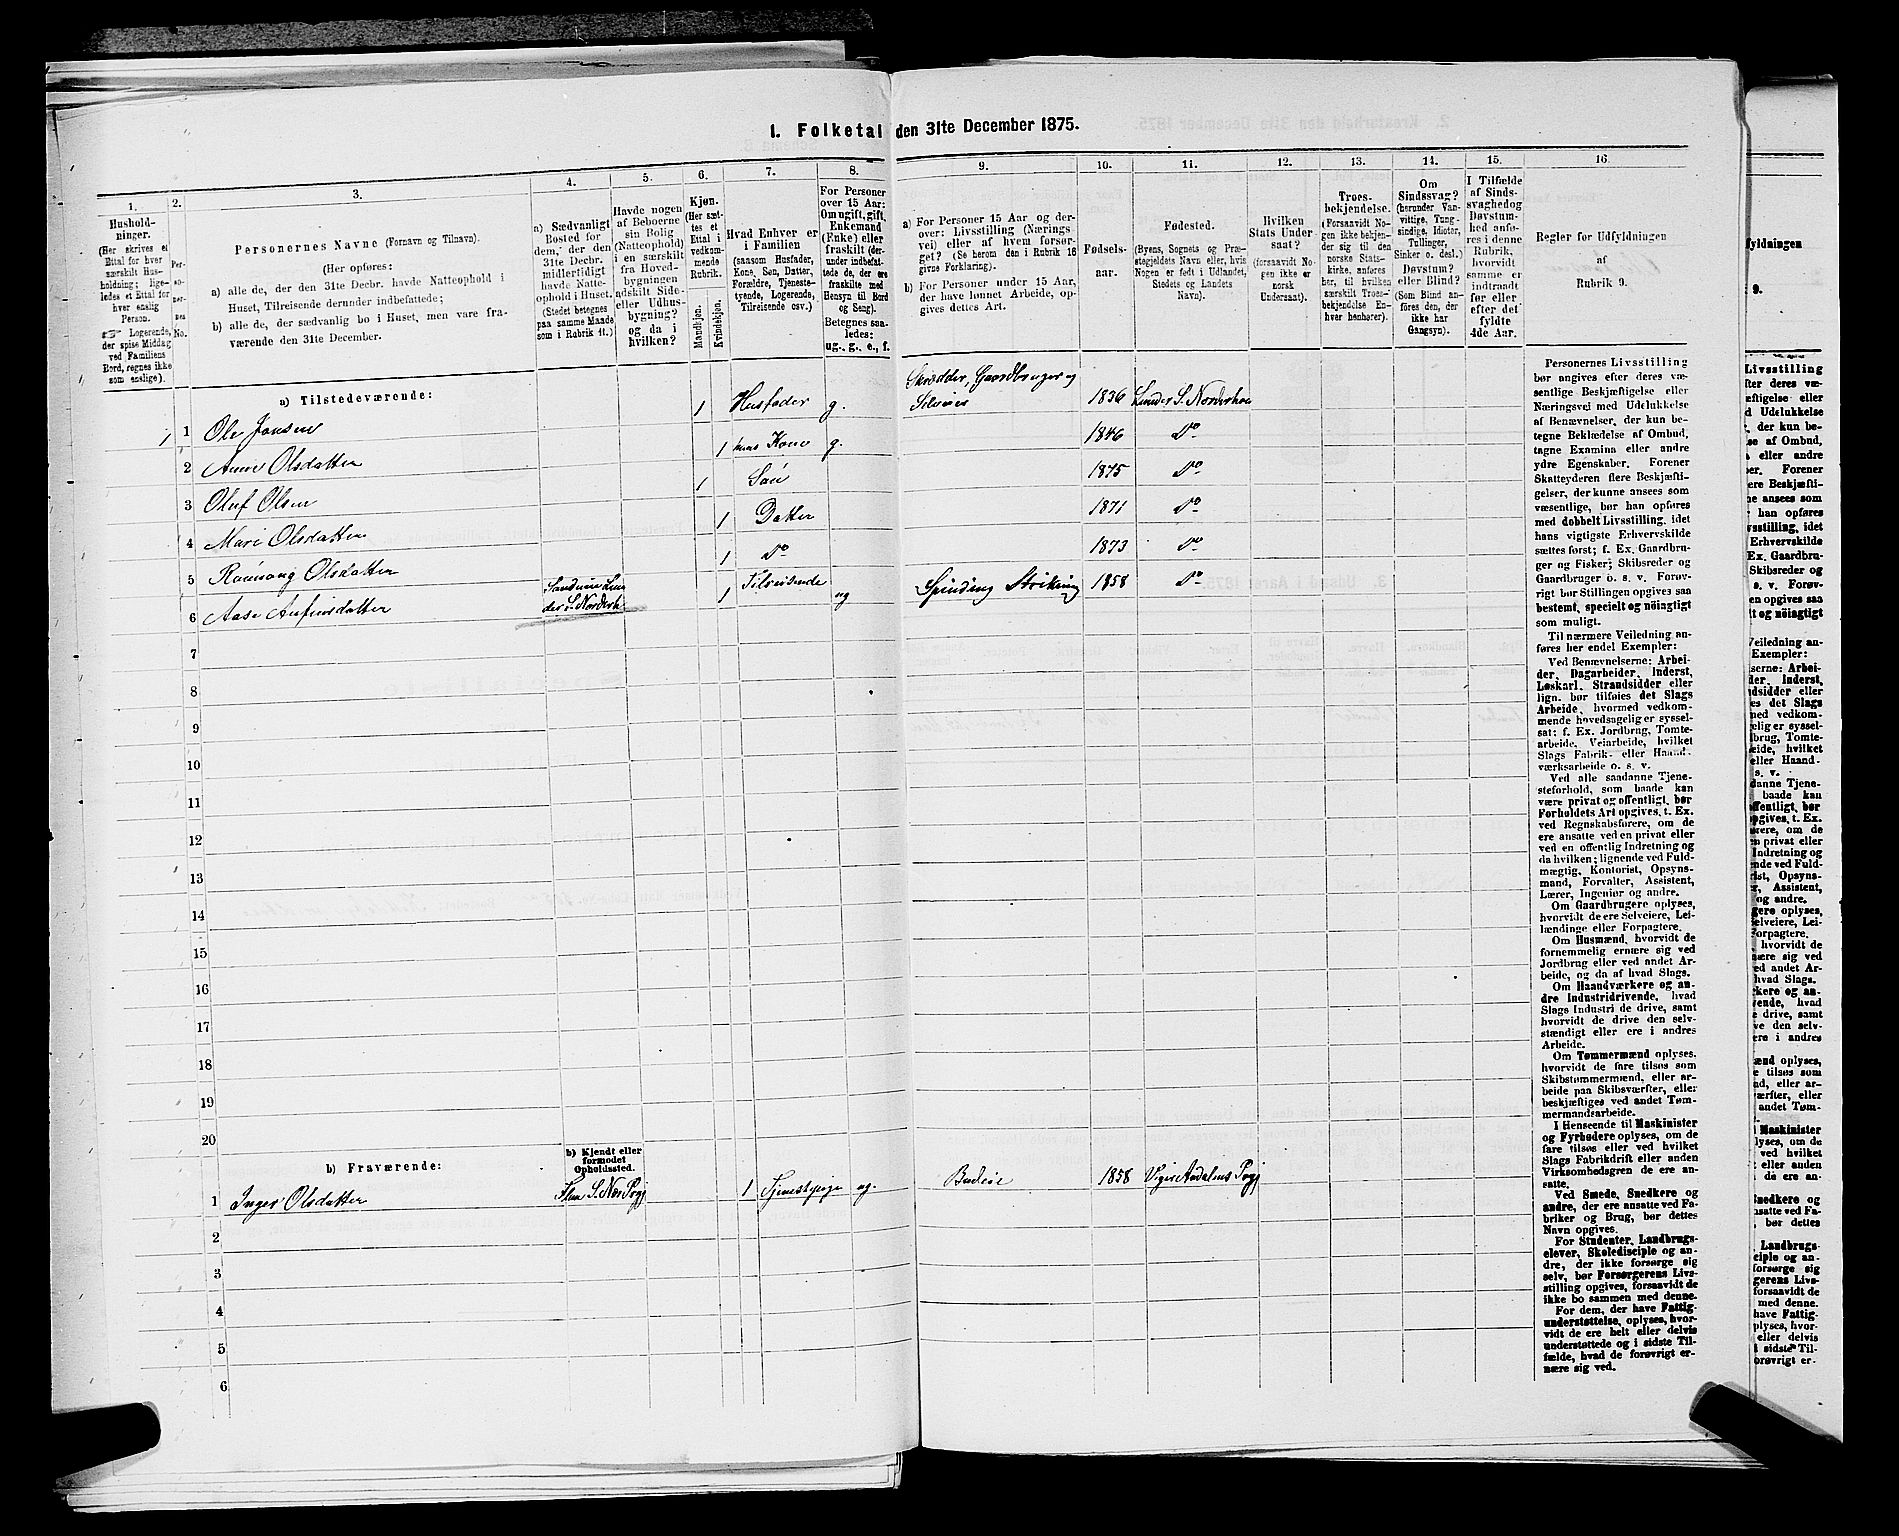 1. Folketal den 31te December 1875.
1.
2.
3.
4.
5.
6.
7.
8.
9.
10.
11.
12.
13.
14.
15.
16.
Hushold-
ninger.
(Her skrives et
Ettal for hver
særskilt Hus-
holdning; lige-
ledes et Ettal for
hver enslig
Person.
☞ Logerende,
der spise Middag
ved Familiens
Bord, regnes ikke
som enslige).
Per-
so-
ner-
nes
No.
Personernes Navne (Fornavn og Tilnavn).
(Her opføres:
a) alle de, der den 31te Decbr. havde Natteophold i
Huset, Tilreisende derunder indbefattede;
b) alle de, der sædvanlig bo i Huset, men vare fra-
værende den 31te December.
a) Sædvanligt
Bosted for
dem, der den
31te Decbr.
midlertidigt
havde Natte-
ophold i Huset.
(Stedet betegnes
paa samme Maade
som i Rubrik 11.)
Havde nogen
af Beboerne
sin Bolig
(Natteophold)
i en særskilt
fra Hoved-
bygningen
adskilt Side-
eller Udhus-
bygning?
og da i
hvilken?
Kjøn.
(Her sæt-
tes et
Ettal i
vedkom-
mende
Rubrik.
Mandkjøn.
Kvindekjøn.
Hvad Enhver er
i Familien
(saasom Husfader,
Kone, Søn, Datter,
Forældre, Tjeneste-
tyende, Logerende,
Tilreisende osv.)
For Personer
over 15 Aar:
Om ugift, gift,
Enkemand
(Enke) eller
fraskilt (der-
under indbefat-
tede de, der ere
fraskilte med
Bensyn til Bord
og Seng).
Betegnes saa-
ledes:
ug., g., e., f.
a) For Personer 15 Aar og der-
over: Livsstilling (Nærings-
vei) eller af hvem forsør-
get? (Se herom den i Rubrik 16
givne Forklaring).
b) For Personer under 15 Aar,
der have lønnet Arbeide, op-
gives dettes Art.
Fødsels-
aar.
Fødested.
(Byens, Sognets og Præ-
stegjeldets Navn eller, hvis
Nogen er født i Udlandet,
Stedets og Landets
Navn).
Hvilken
Stats Under
saat?
(forsaavidt No-
gen ikke er
norsk
Undersaat).
Troes-
bekjendelse.
(Forsaavidt No-
gen ikke bekjen-
der sig til den
norske Stats-
kirke, anføres
her, til hvilken
særskilt Troes-
bekjendelse En-
hver henhører).
Om
Sindssvag?
(herunder Van-
vittige, Tung-
sindige, Idioter,
Tullinger,
Sinker o. desl.)
Døvstum?
eller Blind?
(Som Blind an-
føres den, der
ikke har
Gangsyn).
I Tilfælde
af Sinds-
svaghed og
Døvstum-
hed anfø-
res i denne
Rubrik,
hvorvidt
samme er
indtraadt
før eller
efter det
fyldte
4de Aar.
Regler for Udfyldningen
af
Rubrik 9.
a) Tilstedeværende:
1 1 Ole Jonsen 1 Husfader g. Skrædder, Gaardbruger og Selveier 1836 Lunder S. Norderhov
2 Anne Olsdatter 1 hans Kone g. 1846 Do
3 Oluf Olsen 1 Søn 1875 Do
4 Mari Olsdatter 1 Datter 1871 Do
5 Olsdatter 1 Do 1873 Do
6 Aase 1 Tilreisende ug Spinding Strikning 1858 Do
7
8
9
10
11
12
13
14
15
16
17
18
19
20
b) Fraværende:
b) Kjendt eller
formodet
Opholdssted.
1 Inger Olsdatter 1 Tjenestepige ug. Budeie 1858 Viger Aadalens Prgj
2
3
4
5
6
Personernes Livsstilling
bør angives efter deres væ-
sentlige Beskjæftigelse eller
Næringsvei med Udelukkelse
af Benævnelser, der kun be-
tegne Beklædelse af Ombud,
tagne Examina eller andre
ydre Egenskaber. Forener
Skatteyderen flere Beskjæfti-
gelser, der kunne ansees som
væsentlige, bør han opføres
med dobbelt Livsstilling, idet
hans vigtigste Erhvervskilde
sættes først; f. Ex. Gaardbru-
ger og Fisker; Skibsreder og
Gaardbruger o. s. v. Forøv-
rigt bør Stillingen opgives saa
bestemt, specielt og nöiagtigt
som muligt.
Til nærmere Veiledning an-
føres her endel Exempler:
Ved Benævnelserne: Arbei-
der, Dagarbeider, Inderst,
Løskarl, Strandsidder eller
lign. bør tilføies det Slags
Arbeide, hvormed vedkom-
mende hovedsagelig er syssel-
sat; f. Ex. Jordbrug, Tomte-
arbeide, Veiarbeide, hvilket
Slags Fabrik- eller Haand-
værksarbeide o. s. v.
Ved alle saadanne Tjene-
steforhold, som baade kan
være privat og offentligt, bør
Forholdets Art opgives, t. Ex.
ved Regnskabsførere, om de
ere ansatte ved en privat eller
ved en offentlig Indretning og
da hvilken; lignende ved Fuld-
mægtig, Kontorist, Opsyns-
mand, Forvalter, Assistent,
Lærer, Ingeniør og andre.
Om Gaardbrugere oplyses,
hvorvidt de ere Selveiere, Lei-
lændinge eller Forpagtere.
Om Husmænd, hvorvidt de
fornemmelig ernære sig ved
Jordbrug eller ved andet Ar-
beide, og da af hvad Slags.
Om Haandværkere og an-
dre Industridrivende, hvad
Slags Industri de drive, samt
hvorvidt de drive den selv-
stændigt eller ere i andres
Arbeide.
Om Tømmermænd oplyses,
hvorvidt de fare tilsøs som
Skibstømmermænd, eller ar-
beide paa Skibsværfter, eller
beskjæftiges ved andet Tøm-
mermandsarbeide.
I Henseende til Maskinister
og Fyrbødere oplyses, om de
fare tilsøs eller ved hvilket
Slags Fabrikdrift eller anden
Virksomhedsgren de ere an-
satte.
Ved Smede, Snedkere og
andre, der ere ansatte ved Fa-
briker og Brug, bør dettes
Navn opgives.
For Studenter, Landbrugs-
elever, Skoledisciple og an-
dre, der ikke forsørge sig
selv, bør Forsørgerens Livs-
stilling opgives, forsaavidt de
ikke bo sammen med denne.
For dem, der have Fattig-
understøttelse, oplyses, hvor-
vidt de ere helt eller delvis
understøttede og i sidste Til-
fælde, hvad de forøvrigt er-
nære sig ved.